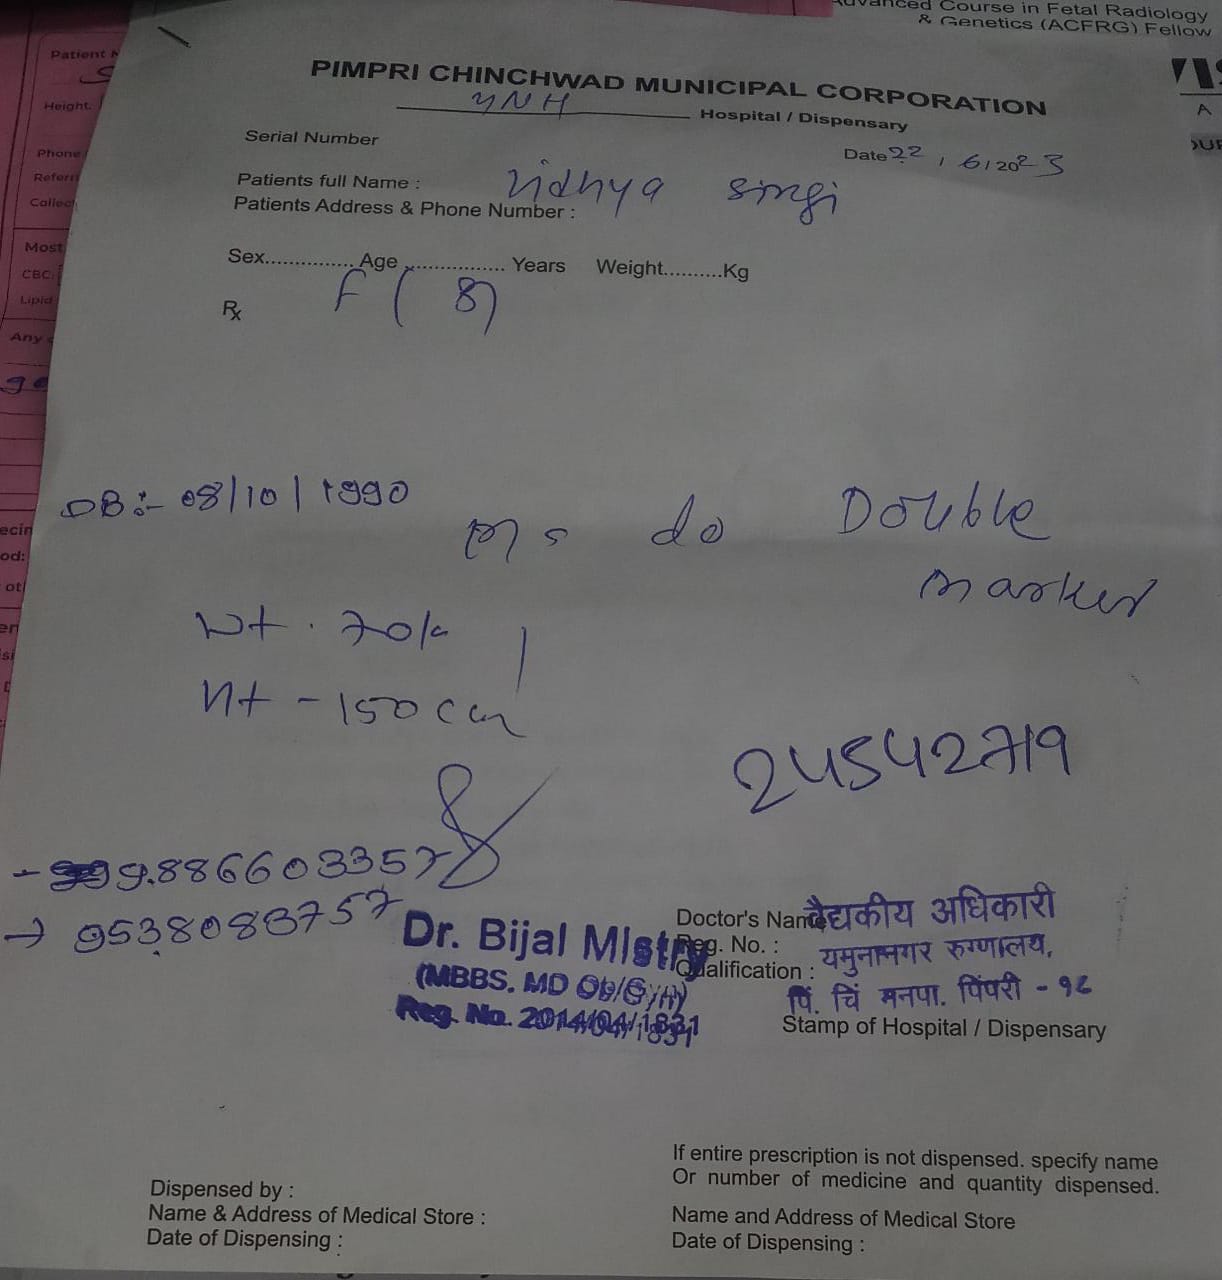 Advanced Course in Fetal Radiology
& Genetics (ACFRG) Fellow
Patient
Height.
Phone
Referr
Collec
Most
CBC:
Lipid
Any
PIMPRI CHINCHWAD MUNICIPAL CORPORATION
YNH Hospital / Dispensary
Serial Number
Date 22 / 6 / 2023
Patients full Name : Vidhya singi
Patients Address & Phone Number :
Sex............... Age ................ Years Weight..........Kg
F ( 8)
Rx
DB:- 08/10/1990
Ms do Double
marker
Wt. 70k
Ht - 150 cm
24542719
9886603357
→ 9538083757
Dr. Bijal Mistry
(MBBS. MD Ob/Gyn)
Reg. No. 2014/04/1831
Doctor's Name वैद्यकीय अधिकारी
Reg. No. : यमुनानगर रुग्णालय,
Qualification : पिं. चिं मनपा. पिंपरी - १८
Stamp of Hospital / Dispensary
If entire prescription is not dispensed. specify name
Or number of medicine and quantity dispensed.
Dispensed by :
Name & Address of Medical Store :
Date of Dispensing :
Name and Address of Medical Store
Date of Dispensing :